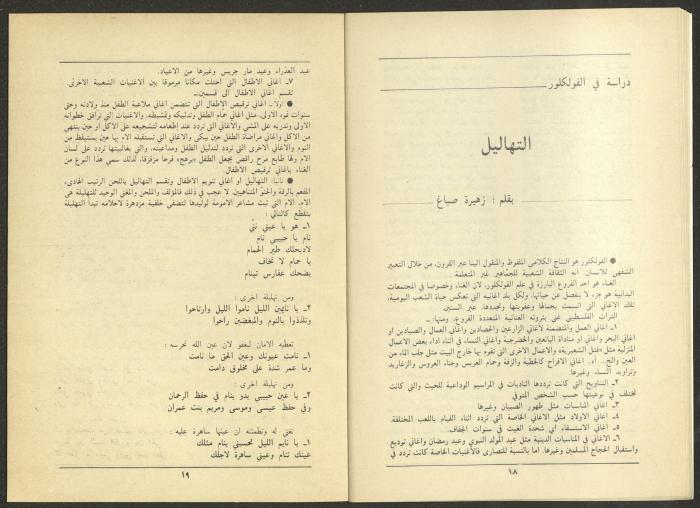 دراسة في الفولكلور
التهاليل
بقلم : زهيرة صباغ
● الفولكلور هو النتاج الكلامي الملفوظ والمنقول الينا عبر القرون، من خلال التعبير
الشفهي للانسان. انه الثقافة الشعبية للجماهير غير المتعلمة .
الغناء هو احد الفروع البارزة في علم الفولكلور، لان الغناء، وخصوصا في المجتمعات
البدائية هو جزء لا ينفصل عن حياتها. ولكل بلد اغانيه التي تعكس حياة الشعب اليومية،
تلك الاغاني التي اتسمت بجمالها وعفويتها وتجددها، عبر السنين
التراث الفلسطيني غني بثروته الغنائية المتعددة الفروع، ومنها: ـ
١ـ اغاني العمل والمتضمنة لأغاني الزارعين والحصادين واغاني العمال والصيادين او
اغاني البحر واغاني او مناداة البائعين والخضرجية واغاني النساء في اثناء اداء بعض الاعمال
المنزلية مثل «فتل الشعيرية» والاعمال الاخرى التي تقوم بها خارج البيت مثل جلب الماء من
العين والخ... اغاني الافراح كالخطبة والزفة وحمام العريس وحناء العروس والزغاريد
وتراويد النساء وغيرها.
٢ـ التناويح التي كانت ترددها النادبات في المراسيم الوداعية للميت والتي كانت
تختلف في نوعيتها حسب الشخص المتوفي
٣ـ اغاني المناسبات مثل طهور الصبيان وغيرها
٤ـ اغاني الاولاد مثل الاغاني الخاصة التي تردد اثناء القيام باللعب المختلفة.
٥ـ اغاني الاستسقاء اي شحدة الغيث في سنوات الجفاف.
٦ـ الاغاني في المناسبات الدينية مثل عيد المولد النبوي وعيد رمضان واغاني توديع
واستقبال الحجاج المسلمين وغيرها. اما بالنسبة للنصارى فالاغنيات الخاصة كانت تردد في
١٨
عيد العذراء وعيد مار جريس وغيرها من الاعياد.
٧ـ اغاني الاطفال التي احتلت مكانا مرموقا بين الاغنيات الشعبية الاخرى.
تقسم اغاني الاطفال الى قسمين:ـ
● اولا ـ اغاني ترقيص الاطفال التي تتضمن اغاني ملاعبة الطفل منذ ولادته وحتى
سنوات نموه الاولى، مثل اغاني حمام الطفل وتدليكه وتقميطه، والاغنيات التي ترافق خطواته
الاولى وتدربه على المشي والاغاني التي تردد عند إطعامه لتشجيعه على الاكل او حين ينتهي
من الاكل واغاني مراضاة الطفل حين يبكي والاغاني التي تستقبله الام بها حين يستيقظ من
النوم والاغاني الاخرى التي تردد لتدليل الطفل ومداعبته، والتي بغالبيتها تردد على لسان
الام ولها طابع مرح راقص يجعل الطفل «يرهج» فرحا مزقزقا، لذلك سمي هذا النوع من
الغناء باغاني ترقيص الاطفال.
● ثانيا: التهاليل او اغاني تنويم الاطفال وتقسم التهاليل باللحن الرتيب الهادىء،
المفعم بالرقة والحنو المتناهيين. لا عجب في ذلك فالمؤلف والملحن والمغني الوحيد للتهليلة هو
الام. الام التي تبث مشاعر الامومة لوليدها لتضفي خلفية مزدهرة لاحلامه تبدأ التهليلة
بتقطع كالتالي:
١ـ هو يا عيني نني
نام يا حبيبي نام
لاذبحلك طير الحمام
يا حمام لا تخاف
بضحك عفارس تينام
ومن تهليلة اخرى:
٢ـ يا نايمين الليل ناموا الليل وارتاحوا
وتلذذوا بالنوم والمبغضين راحوا
تعطيه الامان ليغفو لان عين الله تحرسه:
١ـ نامت عيونك وعين الحق ما نامت
وما عمر شدة على مخلوق دامت
ومن تهليلة اخرى:
٢ـ يا عين حبيبي بدو ينام في حفظ الرحمان
وفي حفظ عيسى وموسى ومريم بنت عمران
تغني له وتطمئنه ان عينها ساهرة عليه:
١ـ يا نايم الليل تحسبني ينام مثلك
عينك تنام وعيني ساهرة لاجلك
١٩